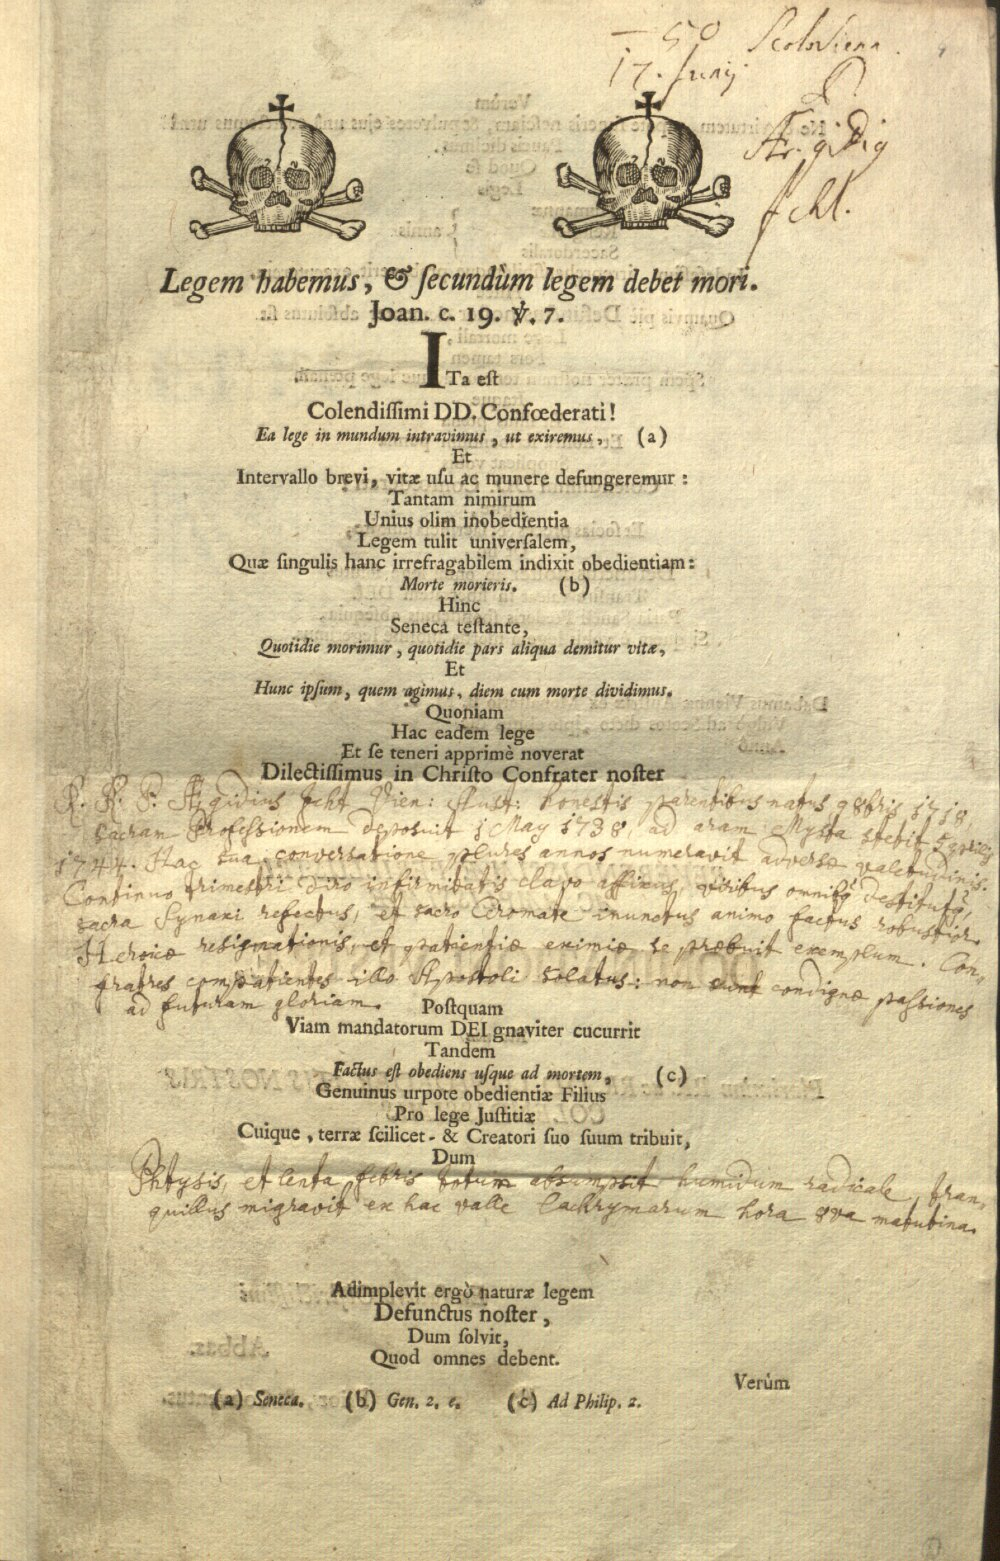 — 50 Scotoviena.
17. Junij.
Æ. gidig
Icht.
Legem habemus, & ſecundùm legem debet mori.
Joan. c. 19. ℣. 7.
ITa eſt
Colendiſſimi DD. Confœderati!
Ea lege in mundum intravimus, ut exiremus, (a)
Et
Intervallo brevi, vitæ uſu ac munere defungeremur:
Tantam nimirum
Unius olim inobedientia
Legem tulit univerſalem,
Quæ ſingulis hanc irrefragabilem indixit obedientiam:
Morte morieris. (b)
Hinc
Seneca teſtante,
Quotidie morimur, quotidie pars aliqua demitur vitæ,
Et
Hunc ipſum, quem agimus, diem cum morte dividimus.
Quoniam
Hac eadem lege
Et ſe teneri apprimè noverat
Dilectiſſimus in Chriſto Confrater noſter
R. R. P. Ægidius Icht Vien: Aust: honestis parentibus natus 9bris 1718,
sacram Professionem deposuit 1 May 1738, ad aram Mysta stetit 5 Aprilis
1744. Hac sua conversatione plures annos numeravit adversæ valetudinis.
Continuo trimestri diro infirmitatis clavo affixus, viribus omnibq destitutq,
sacra Synaxi refectus, et sacro Aromate inunctus animo factus robustior.
Heroicæ resignationis, et patientiæ eximiæ se præbuit exemplum. Con-
fratres compatientes illo Apostoli solatus: non sunt condignæ passiones
ad futuram gloriam.
Poſtquam
Viam mandatorum DEI gnaviter cucurrit
Tandem
Factus eſt obediens uſque ad mortem, (c)
Genuinus utpote obedientiæ Filius
Pro lege Juſtitiæ
Cuique, terræ ſcilicet - & Creatori ſuo ſuum tribuit,
Dum
Phtysis, et lenta febris totum absumpsit humidum radicale, tran-
quillus migravit ex hac valle lachrymarum hora 8va matutina.
Adimplevit ergò naturæ legem
Defunctus noſter,
Dum ſolvit,
Quod omnes debent.
Verùm
(a) Seneca. (b) Gen. 2. c. (c) Ad Philip. 2.